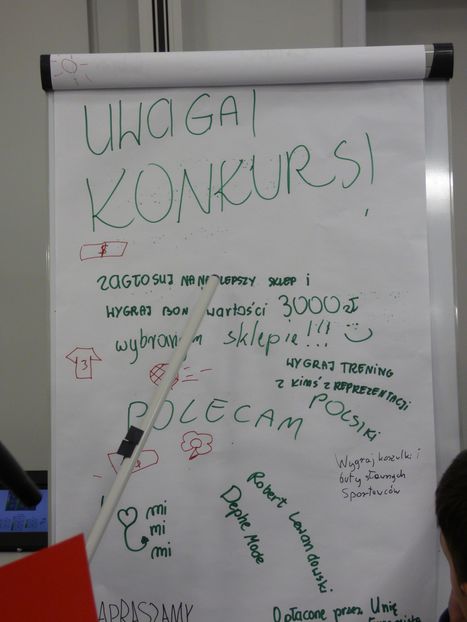 UWAGA!
KONKURS!
$
ZAGŁOSUJ NA NAJLEPSZY SKLEP i
WYGRAJ BON wartości 3000 zł
wybranym sklepie!!!
WYGRAJ TRENING
Z KIMŚ Z REPREZENTACJI
POLSIKI
3
POLECAM
Wygraj koszulki i
buty sławnych
Sportowców
mi
mi
mi
Robert Lewandowski
Dephe Mode
APRASZAMY
Opłacone przez Unię